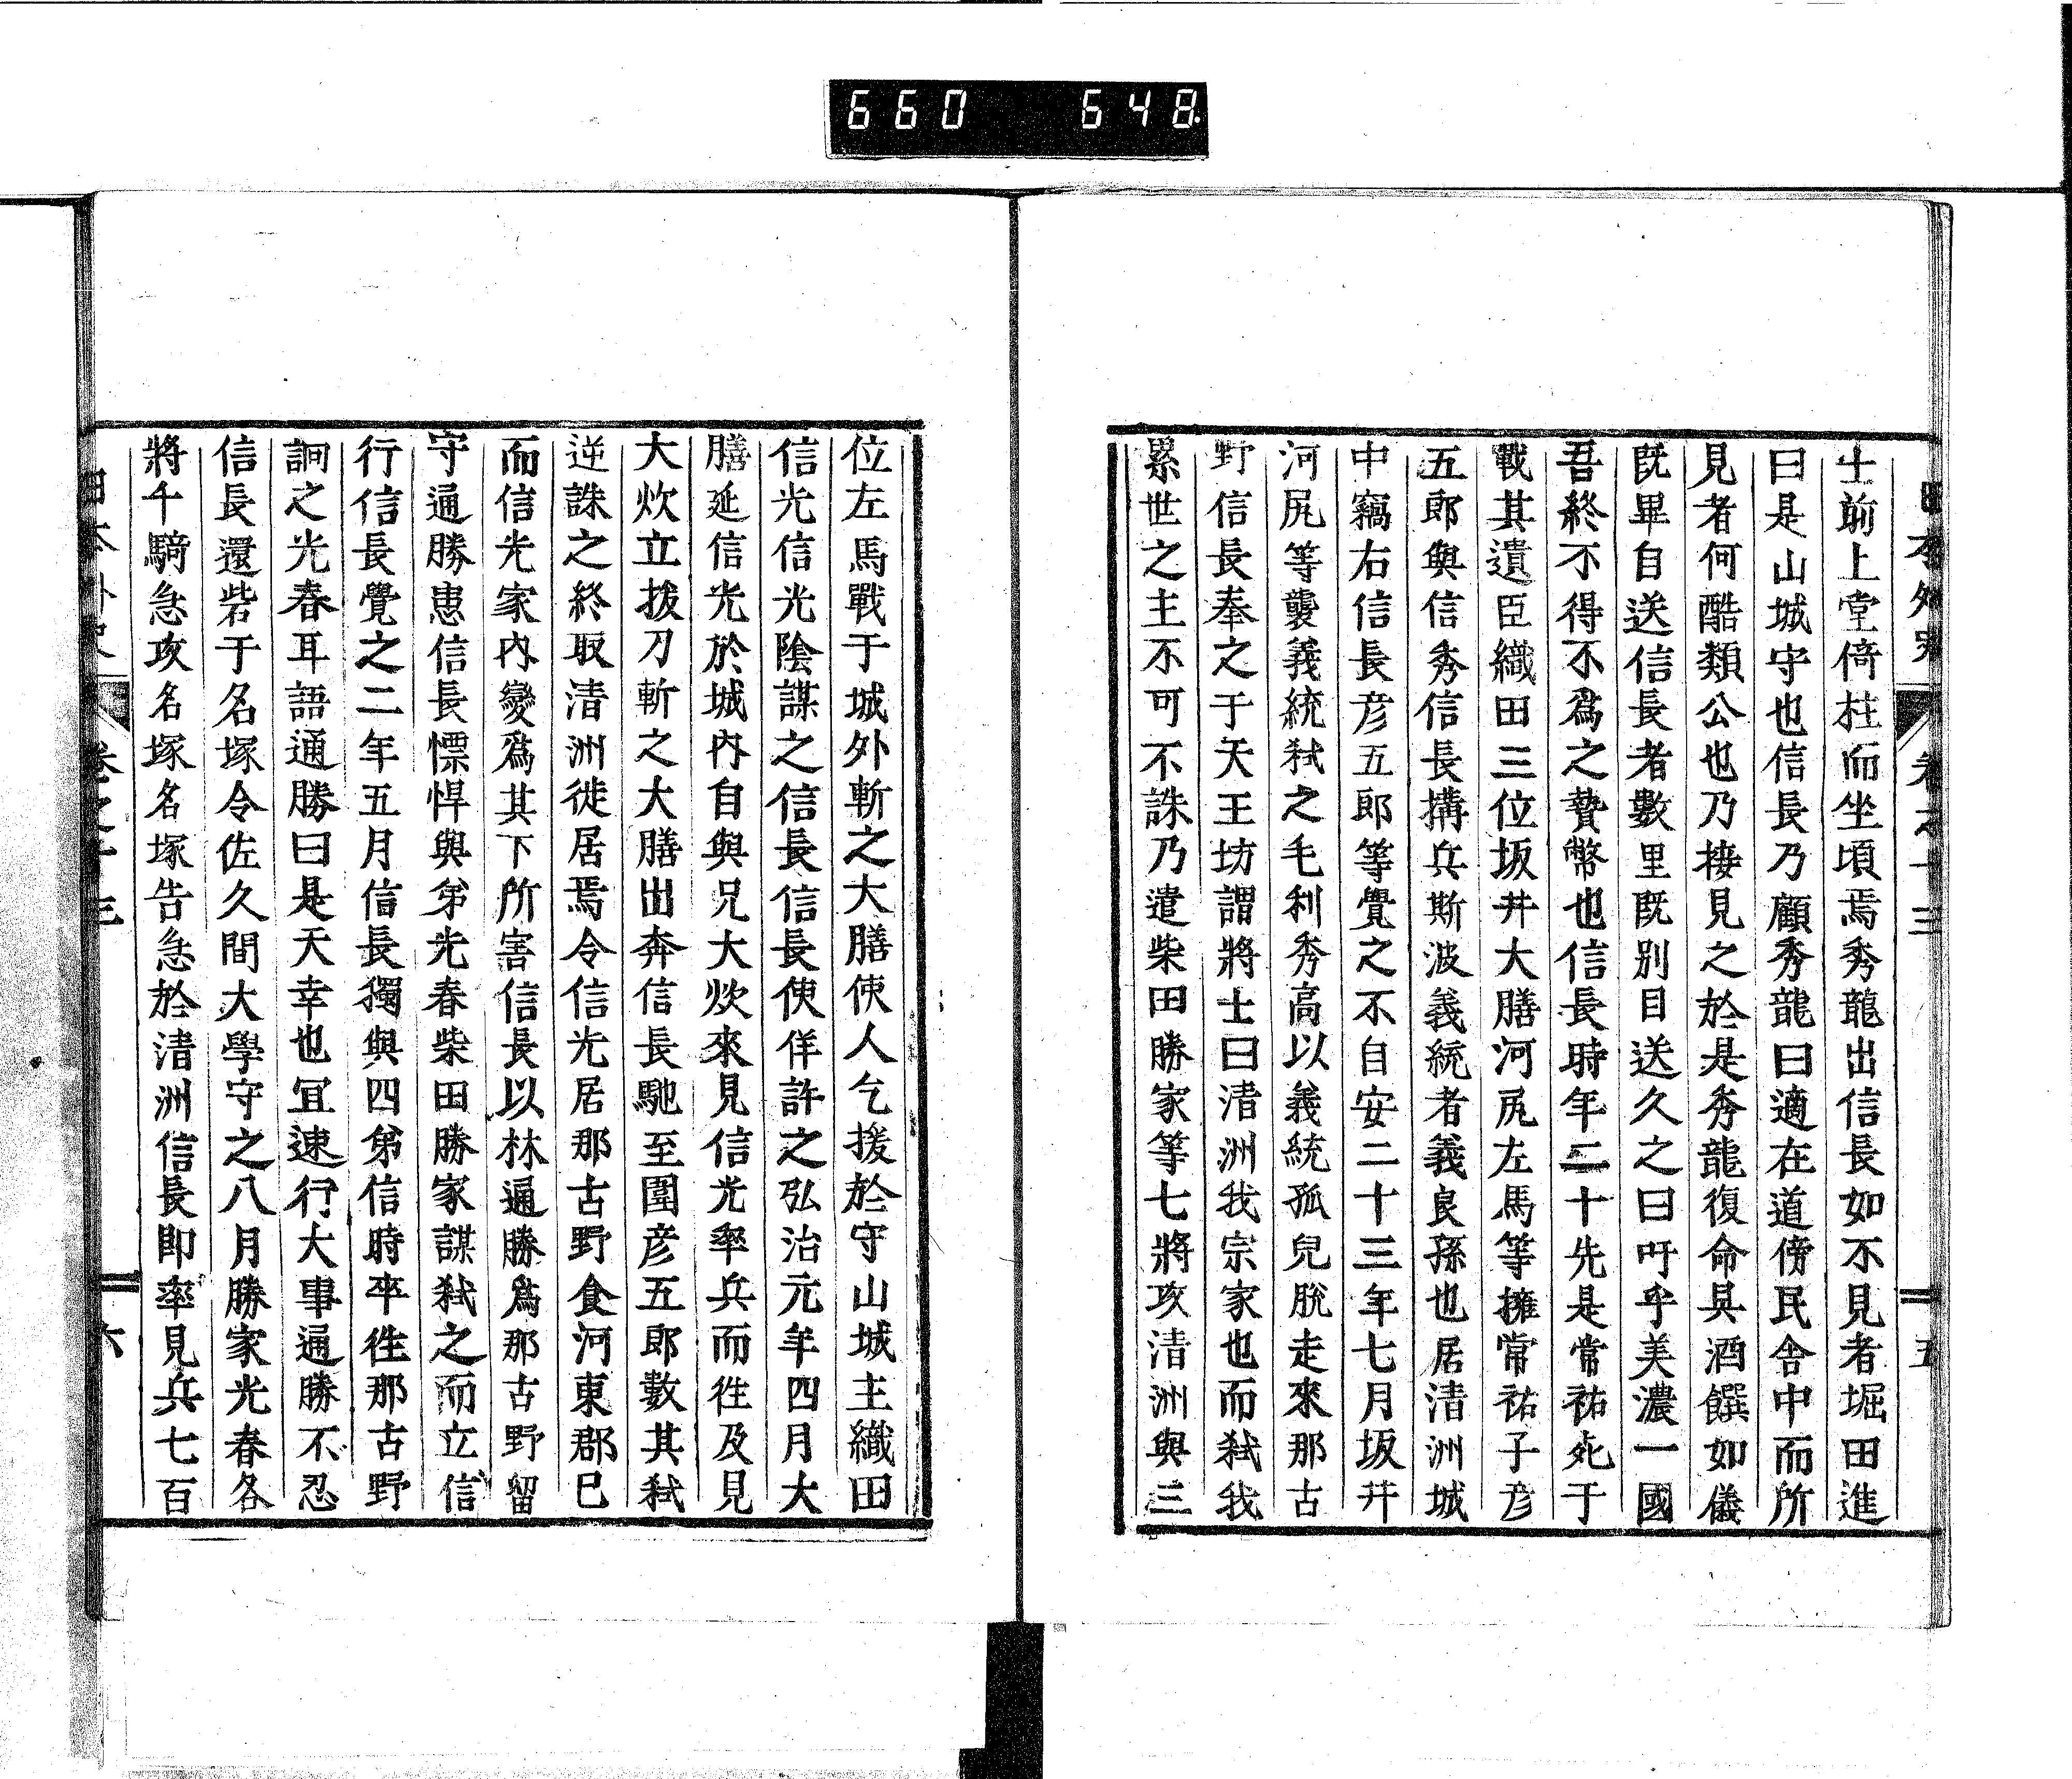 660 648
日本外史 卷之十三 五
士前上堂倚柱而坐頃焉秀龍出信長如不見者堀田進
曰是山城守也信長乃顧秀龍曰適在道傍民舎中而所
見者何酷類公也乃接見之於是秀龍復命具酒饌如儀
既畢自送信長者數里既別目送久之曰吁乎美濃一國
吾終不得不爲之贄幣也信長時年二十先是常祐死于
戰其遺臣織田三位坂井大膳河尻左馬等擁常祐子彦
五郎與信秀信長搆兵斯波義統者義良孫也居清洲城
中竊右信長彦五郎等覺之不自安二十三年七月坂井
河尻等襲義統弑之毛利秀高以義統孤兒脱走來那古
野信長奉之于天王坊謂將士曰清洲我宗家也而弑我
累世之主不可不誅乃遣柴田勝家等七將攻清洲與三
位左馬戰于城外斬之大膳使人乞援於守山城主織田
信光信光陰謀之信長信長使佯許之弘治元年四月大
膳延信光於城内自與兄大炊來見信光率兵而徃及見
大炊立拔刀斬之大膳出奔信長馳至圍彦五郎數其弑
逆誅之終取清洲徙居焉令信光居那古野食河東郡巳
而信光家内變爲其下所害信長以林通勝爲那古野留
守通勝患信長慓悍與弟光春柴田勝家謀弑之而立信
行信長覺之二年五月信長獨與四弟信時卒徃那古野
詗之光春耳語通勝曰是天幸也冝速行大事通勝不忍
信長還砦于名塚令佐久間大學守之八月勝家光春各
將千騎急攻名塚名塚告急於清洲信長即率見兵七百
日本外史 卷之十三 六